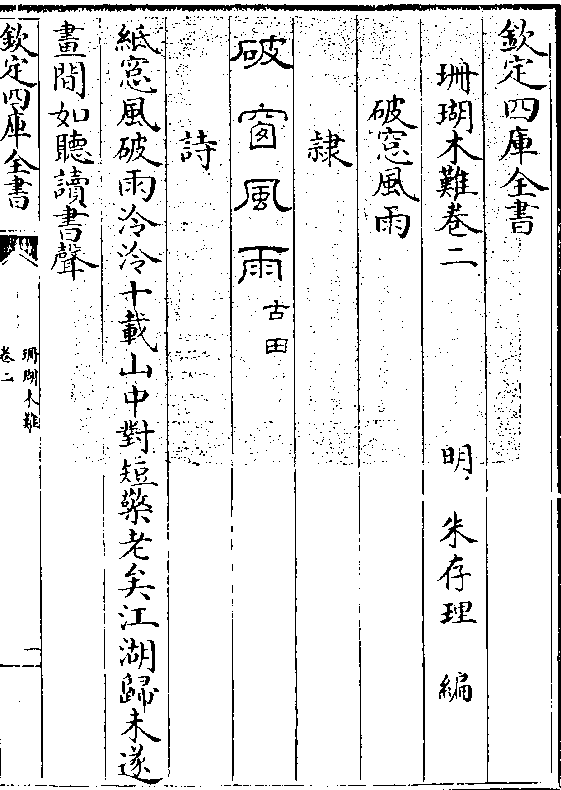 欽定四庫全書
珊瑚木難卷二
明 朱存理 編
破窓風雨
隸
破窗風雨 古田
詩
紙窓風破雨泠泠十載山中對短檠老矣江湖歸未遂
畫間如聽讀書聲
欽定四庫全書
珊瑚木難
卷二
一